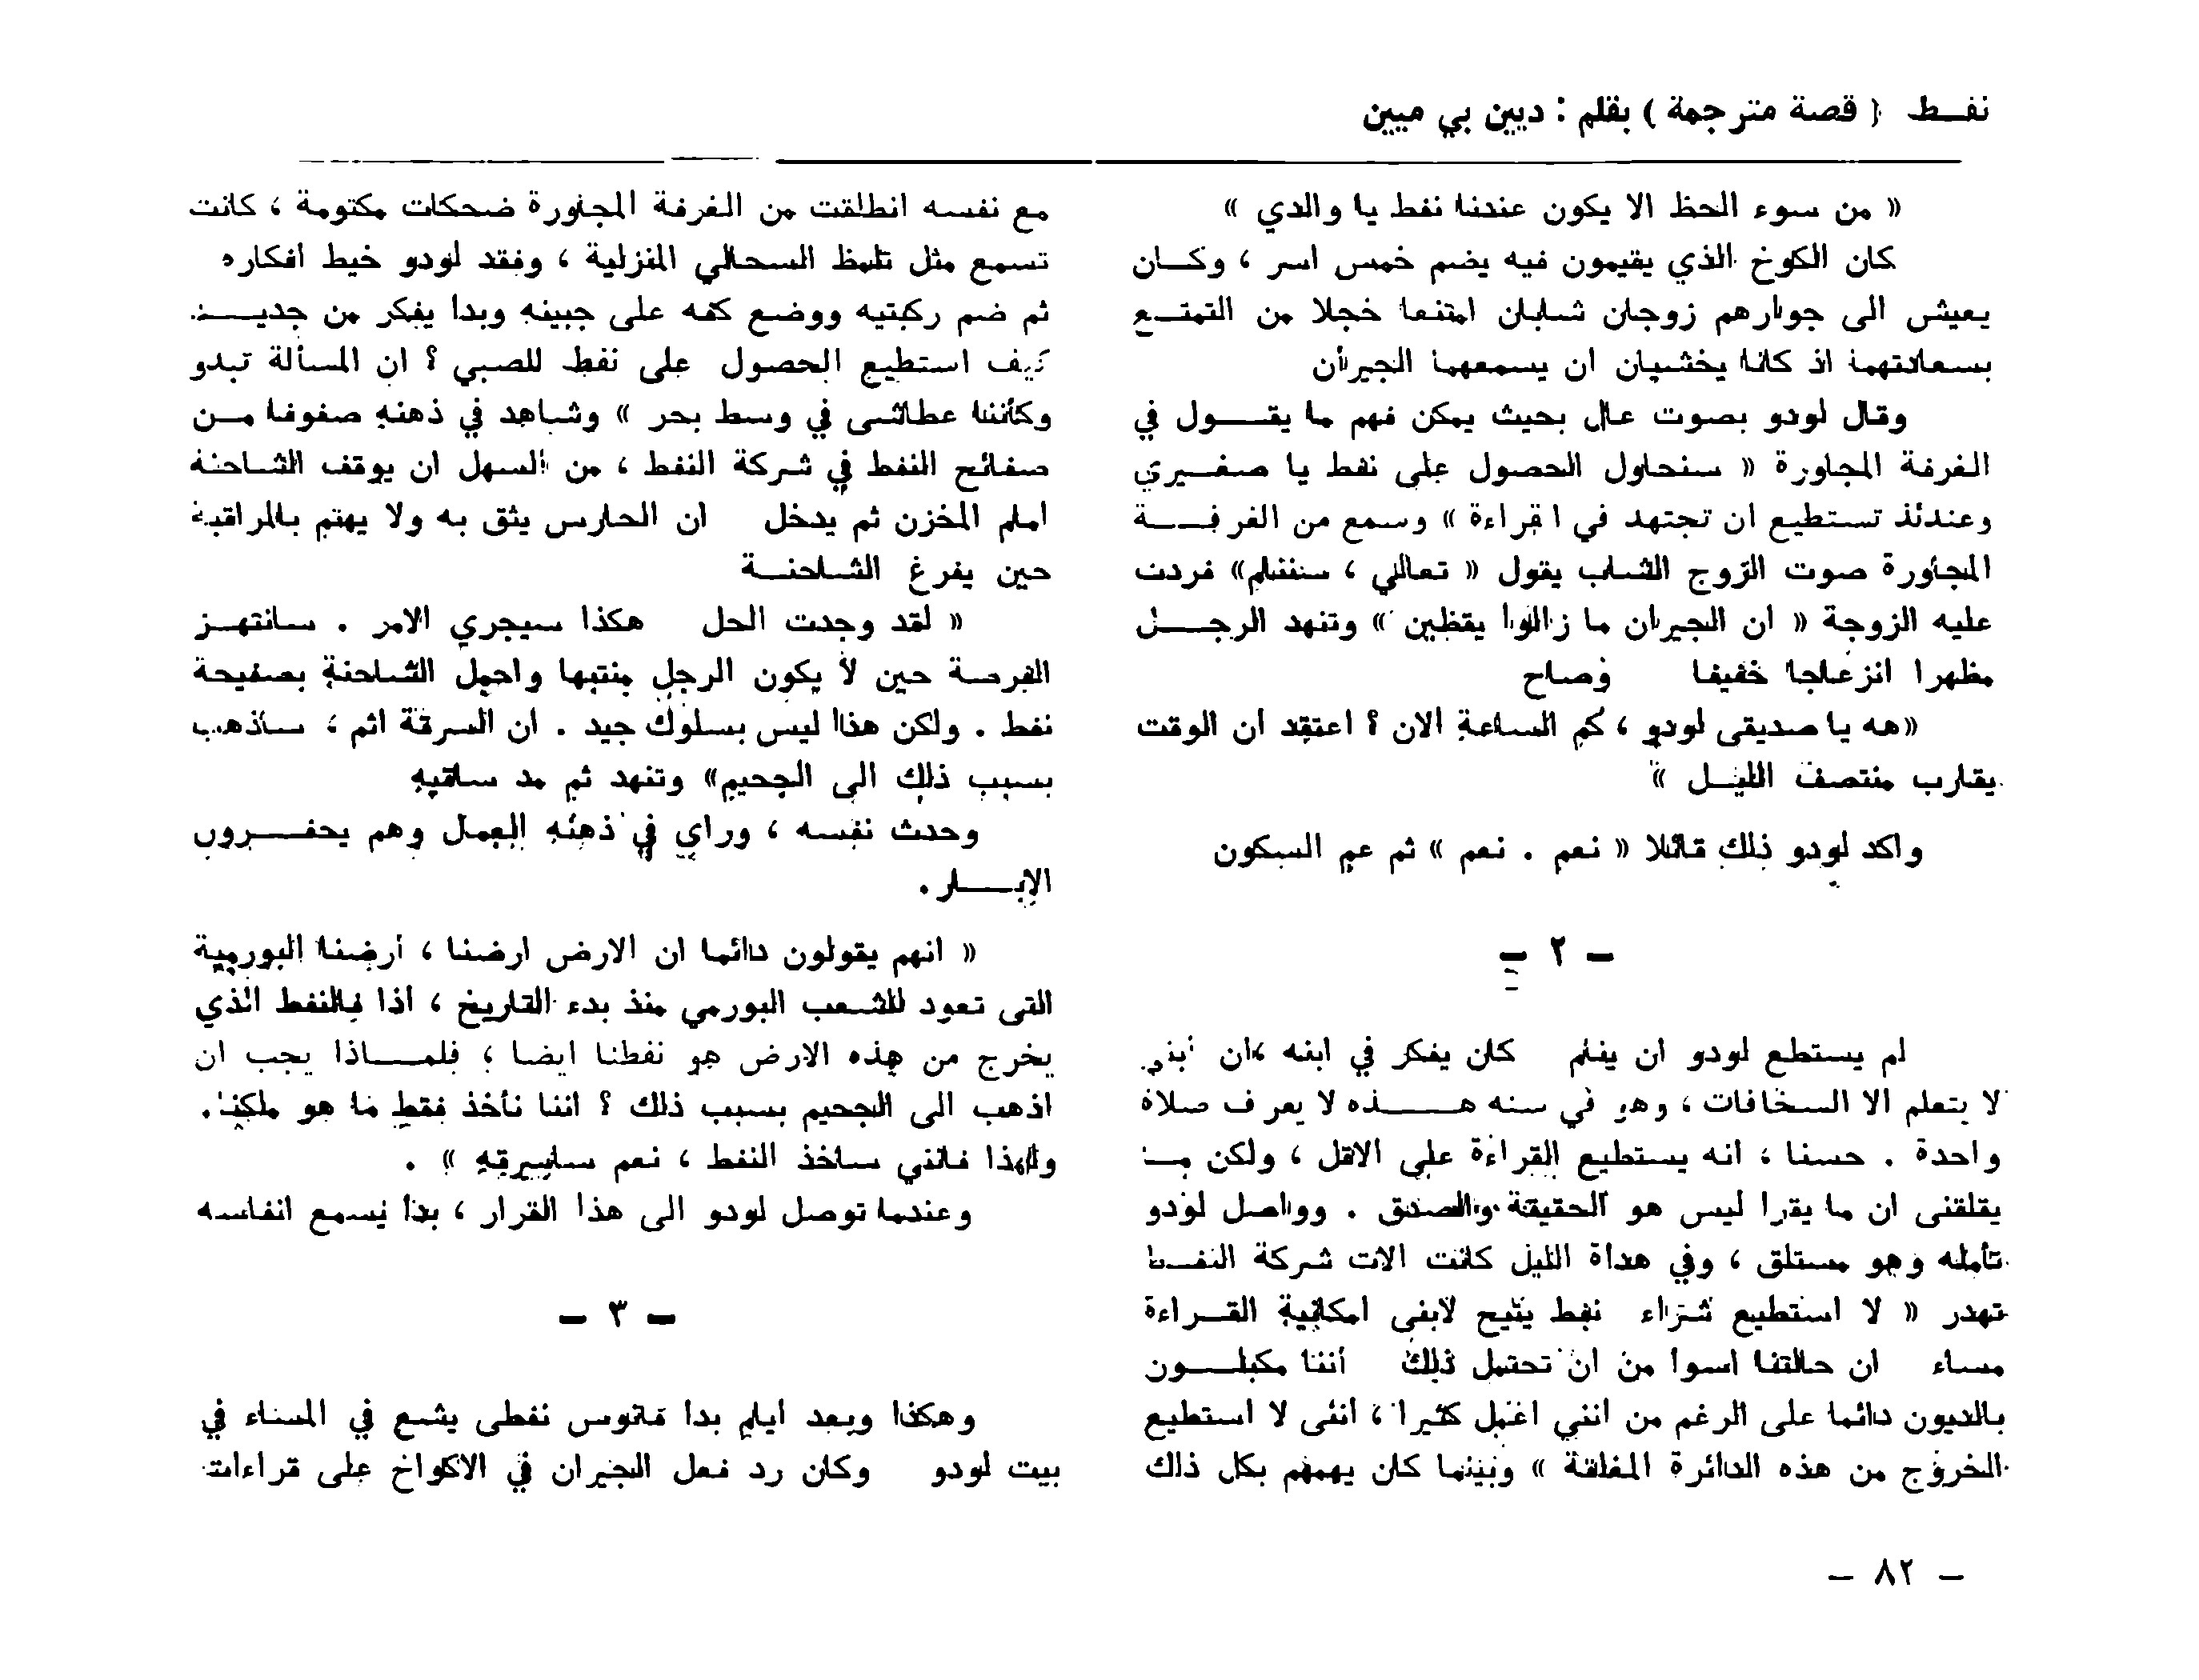 نفــط ( قصة مترجمة ) بقلم : ديين بي ميين
« من سوء الحظ الا يكون عندنا نفط يا والدي »
كان الكوخ الذي يقيمون فيه يضم خمس اسر ، وكــان
يعيش الى جوارهم زوجان شابان امتنعا خجلا من التمتــع
بسعادتهما اذ كانا يخشيان ان يسمعهما الجيران
وقال لودو بصوت عال بحيث يمكن فهم ما يقــول في
الغرفة المجاورة « سنحاول الحصول على نفط يا صغــيري
وعندئذ تستطيع ان تجتهد في القراءة » وسمع من الغرفــة
المجاورة صوت الزوج الشاب يقول « تعالي ، سننام» فردت
عليه الزوجة « ان الجيران ما زالوا يقظين » وتنهد الرجــل
مظهرا انزعاجا خفيفا وصاح
«هه يا صديقى لودو ، كم الساعة الان ؟ اعتقد ان الوقت
يقارب منتصف الليـل »
واكد لودو ذلك قائلا « نعم . نعم » ثم عم السكون
ــ ٢ ــ
لم يستطع لودو ان ينام كان يفكر في ابنه ،ان ابنى
لا يتعلم الا السخافات ، وهو في سنه هــــذه لا يعرف صلاة
واحدة . حسنا ، انه يستطيع القراءة على الاقل ، ولكن مــا
يقلقنى ان ما يقرا ليس هو الحقيقة والصدق . وواصل لودو
تأمله وهو مستلق ، وفي هدأة الليل كانت الات شركة النفــط
تهدر « لا استطيع شراء نفط يتيح لابنى امكانية القــراءة
مساء ان حالتنا اسوا من ان تحتمل ذلك أننا مكبلــون
بالديون دائما على الرغم من انني اعمل كثيرا ، انى لا استطيع
الخروج من هذه الدائرة المغلقة » وبينما كان يهمهم بكل ذاك
مع نفسه انطلقت من الغرفة المجاورة ضحكات مكتومة ، كانت
تسمع مثل تلمظ السحالي المنزلية ، وفقد لودو خيط افكاره
ثم ضم ركبتيه ووضع كفه على جبينه وبدا يفكر من جديــد.
كيف استطيع الحصول على نفط للصبي ؟ ان المسألة تبدو
وكأننا عطاشى في وسط بحر » وشاهد في ذهنه صفوفا مــن
صفائح النفط في شركة النفط ، من السهل ان يوقف الشاحنة
امام المخزن ثم يدخل ان الحارس يثق به ولا يهتم بالمراقبة
حين يفرغ الشاحنــة
« لقد وجدت الحل هكذا سيجري الامر . سانتهــز
الفرصة حين لا يكون الرجل منتبها واحمل الشاحنة بصفيحة
نفط . ولكن هذا ليس بسلوك جيد . ان السرقة اثم ، سأذهب
بسبب ذلك الى الجحيم» وتنهد ثم مد ساقيه
وحدث نفسه ، وراى في ذهنه العمال وهم يحفــرون
الابــار .
« انهم يقولون دائما ان الارض ارضنا ، أرضنا البورمية
التى تعود للشعب البورمي منذ بدء التاريخ ، اذا فالنفط الذي
يخرج من هذه الارض هو نفطنا ايضا ؛ فلمــاذا يجب ان
اذهب الى الجحيم بسبب ذلك ؟ اننا نأخذ فقط ما هو ملكنا .
ولهذا فانني ساخذ النفط ، نعم ساسرقه » .
وعندما توصل لودو الى هذا القرار ، بدا يسمع انفاسه
ــ ٣ ــ
وهكذا وبعد ايام بدا فانوس نفطى يشع في المساء في
بيت لودو وكان رد فعل الجيران في الاكواخ على قراءات
ــ ٨٢ ــ